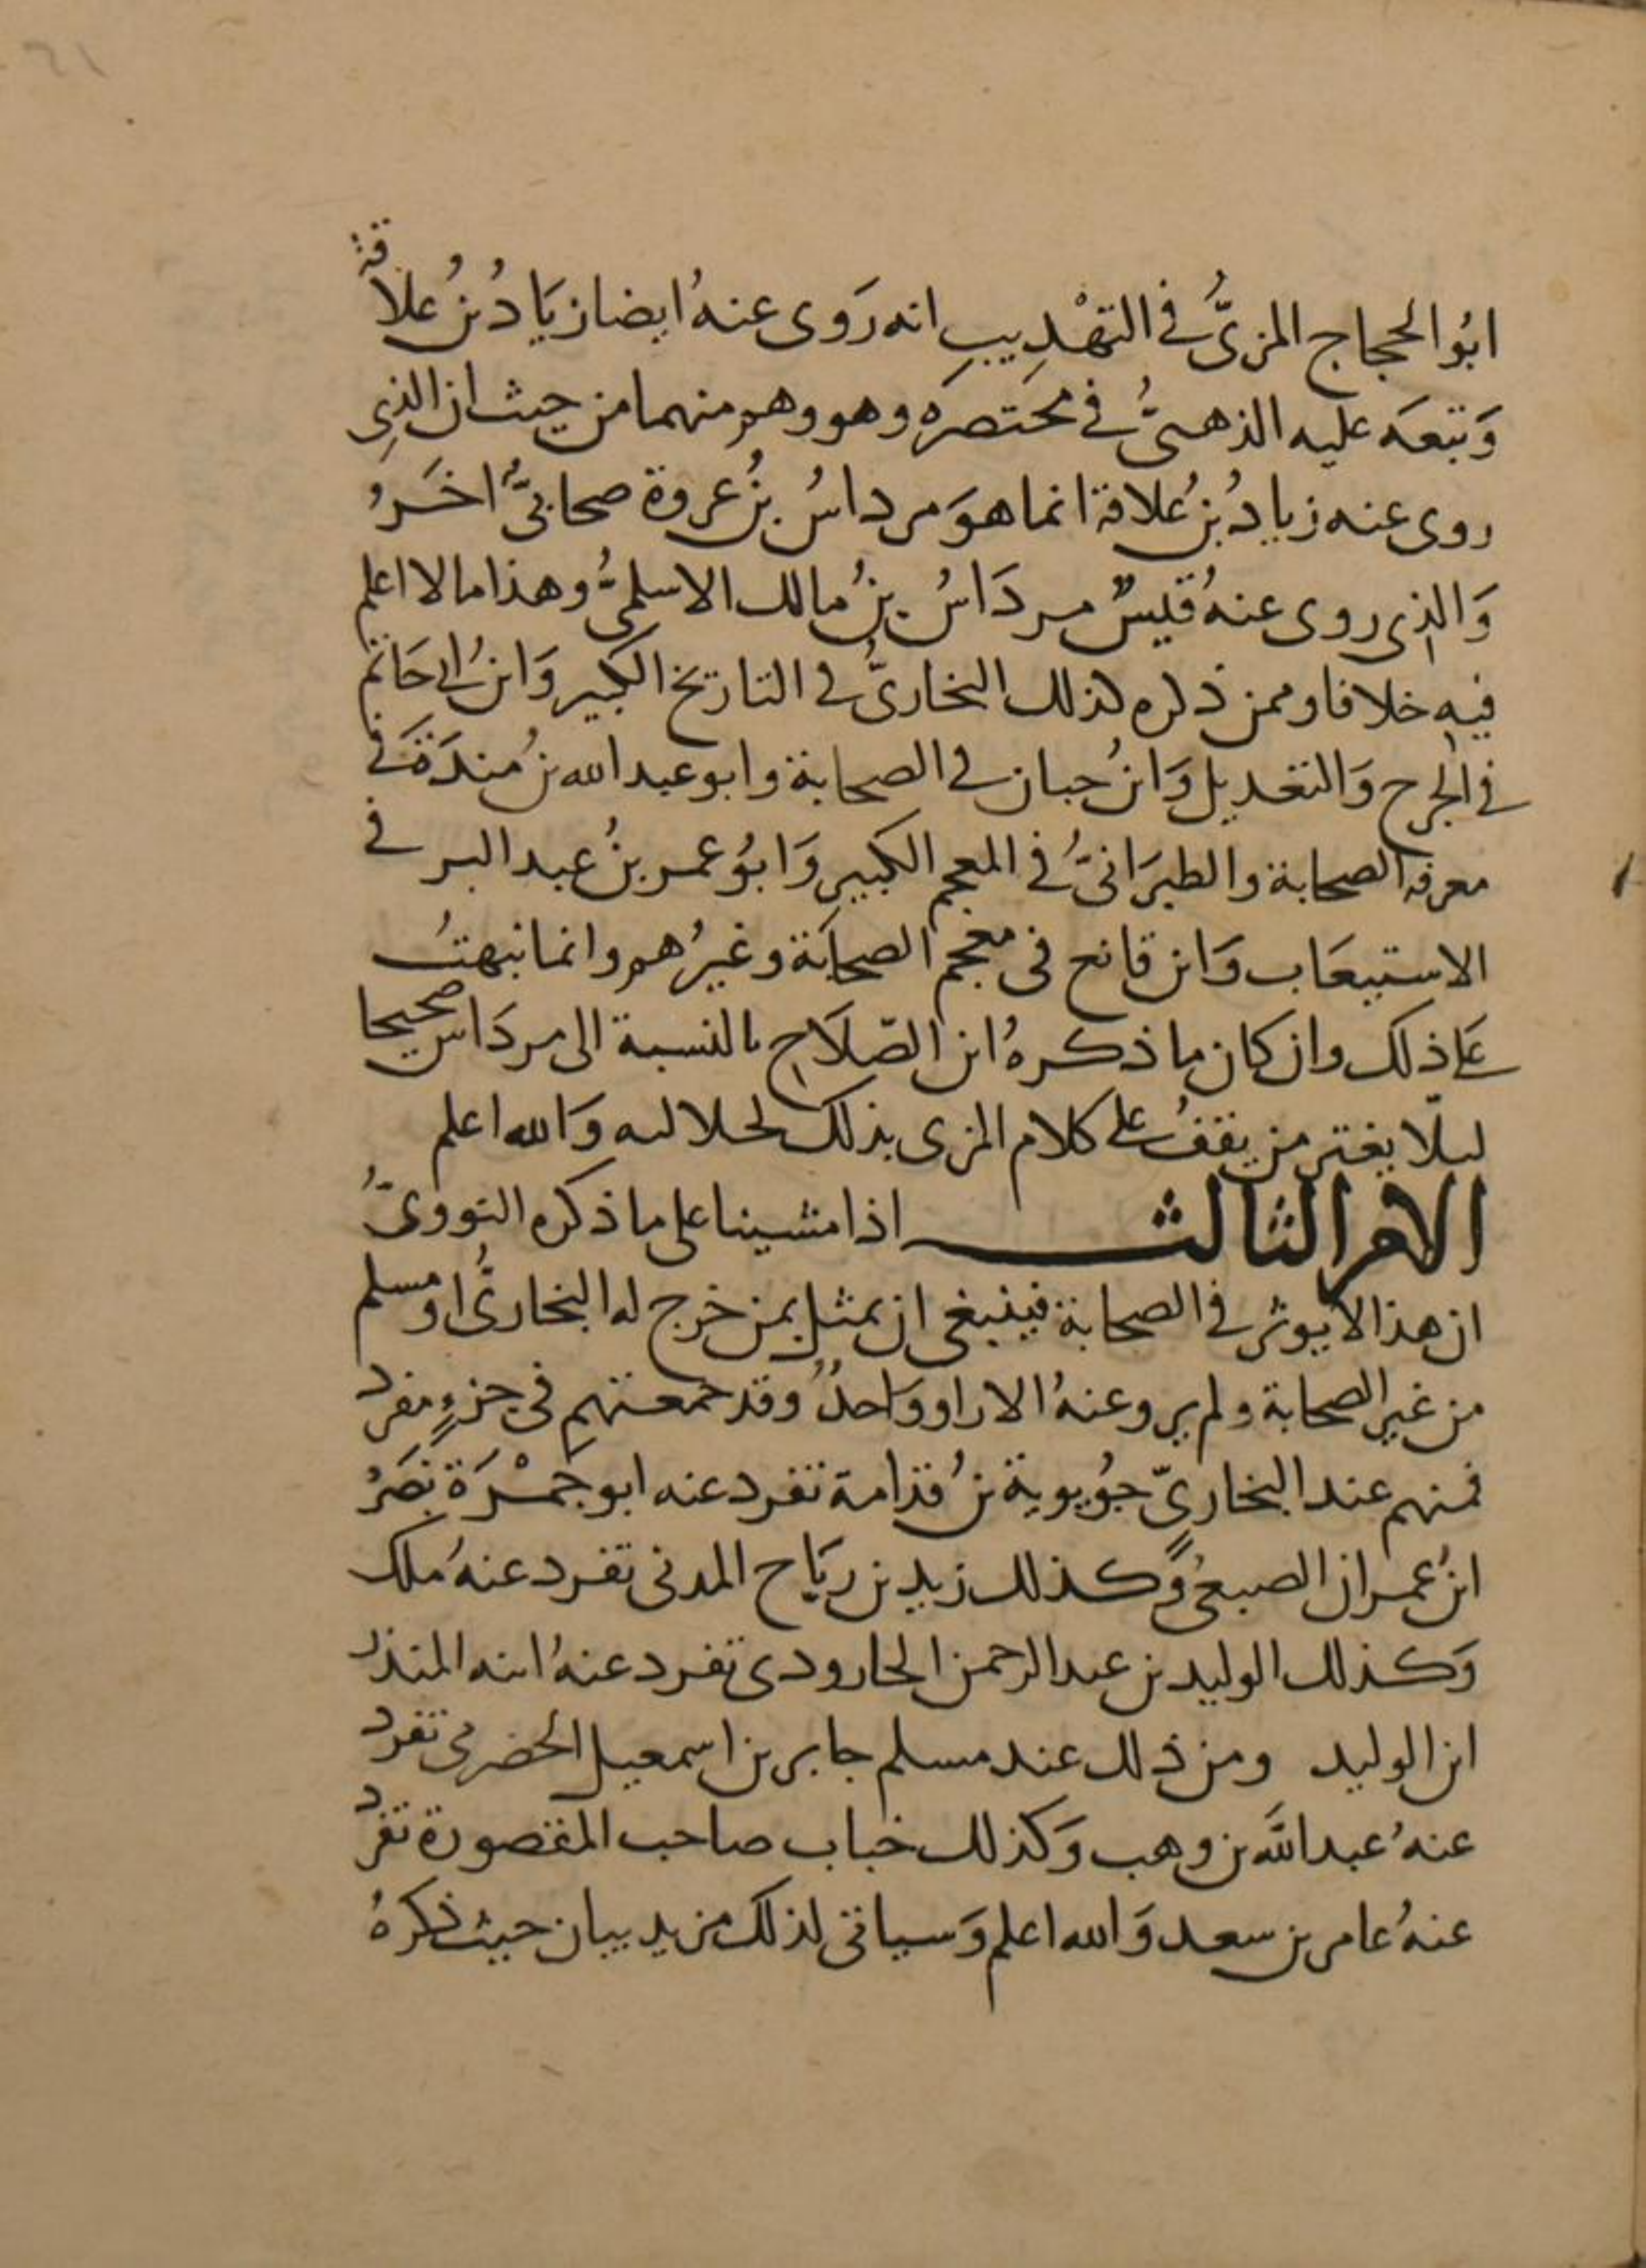 ابُو الحجاج المزىُّ فى التهْذِيبِ انه رَوى عنهُ ايضا زيَادُ بنُ عُلاقة
وَتبَعَه عليه الذهبىُّ فى مختصرَه وهو وهم منهما من حيث ان الذِى
روى عنه زيادُ بنُ عُلاقة انما هوَ مرداسُ بنُ عروة صحابىٌّ اخَرُ
وَالذِى روى عنهُ قيسٌ مردَاسُ بنُ مالك الاسلمىُّ وهذا مالا اعلم
فيهِ خلافا وممن ذكره كذلك البخارىُّ فى التاريخ الكبير وَابنُ ابى حَاتم
فى الجرح وَالتعديل وَابنُ حبان فى الصحابة وابو عبد الله بنُ مندَةَ فى
معرفة الصحابة والطبرَانىُّ فى المعجم الكبير وَابوُ عمر بنُ عبد البر فى
الاستيعَاب وَابن قانع فى معجم الصحابَة وغيرُهم وانما نبهتُ
على ذلك وان كان ما ذكرهُ ابن الصّلَاحِ بالنسبة الى مردَاس صحيحا
ليلّا يغتر من يقفُ على كلام المزى بذلك لجلالته وَالله اعلم
الامر الثالث اذا مشينا على ما ذكره النووىُّ
ان هذا لا يوثر فى الصحابة فينبغى ان يمثل بمن خرج له البخارىُّ او مسلم
من غير الصحابة ولم يرو عنهُ الا راو وَاحدٌ وقد جمعتهمِ فى جزءٍ مفرد
فمنهم عند البخارىّ جوُيوية بنُ قدامة تفرد عنه ابو جمْرَة نصَرُ
ابنُ عمران الضبعىُ وَكذلك زيد بن ربَاح المدنى تفرد عنهُ ملك
وَكذلك الوليد بن عبد الرحمن الجارودى تفرد عنهُ ابنه المنذر
ابن الوليد ومن ذلك عند مسلم جابر بن اسمعيل الحضرمى تفرد
عنهُ عبد اللَّه بن وهب وَكذلك خباب صاحب المقصورة تفرد
عنهُ عامر بن سعد وَالله اعلم وَسياتى لذلك مزيد بيان حيث ذكرهُ